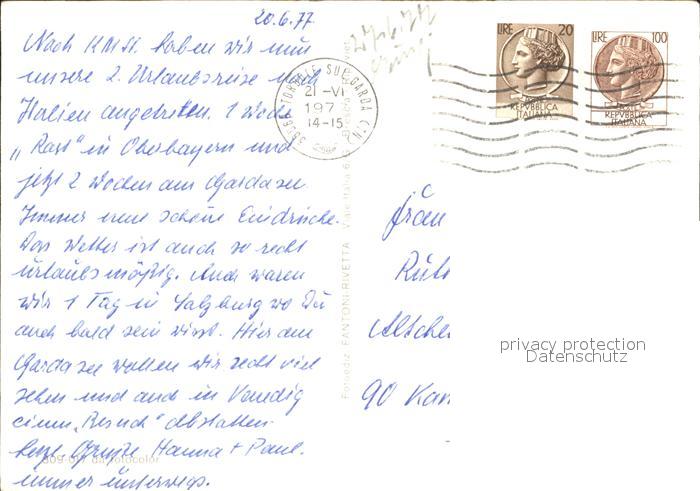 20.6.77
Nach K.M.St. haben wir nun
unsere 2. Urlaubsreise nach
Italien angetreten. 1 Woche
„Rast" in Oberbayern und
jetzt 2 Wochen am Gardasee
Immer neue schöne Eindrücke.
Das Wetter ist auch so recht
urlaubsmäßig. Auch waren
wir 1 Tag in Salzburg wo Du
auch bald sein wirst. Hier am
Gardasee wollen wir recht viel
sehen und auch in Venedig
einen „Besuch" abstatten.
Herzl. Grüße Hanna + Paul.
immer unterwegs.
LIRE 20
REPVBBLICA
ITALIANA
LIRE 100
REPVBBLICA
ITALIANA
TORRI SUL GARDA
21-VI
197
14-15
Fotoediz. FANTONI-RIVETTA Viale Italia
Frau
90
privacy protection
Datenschutz